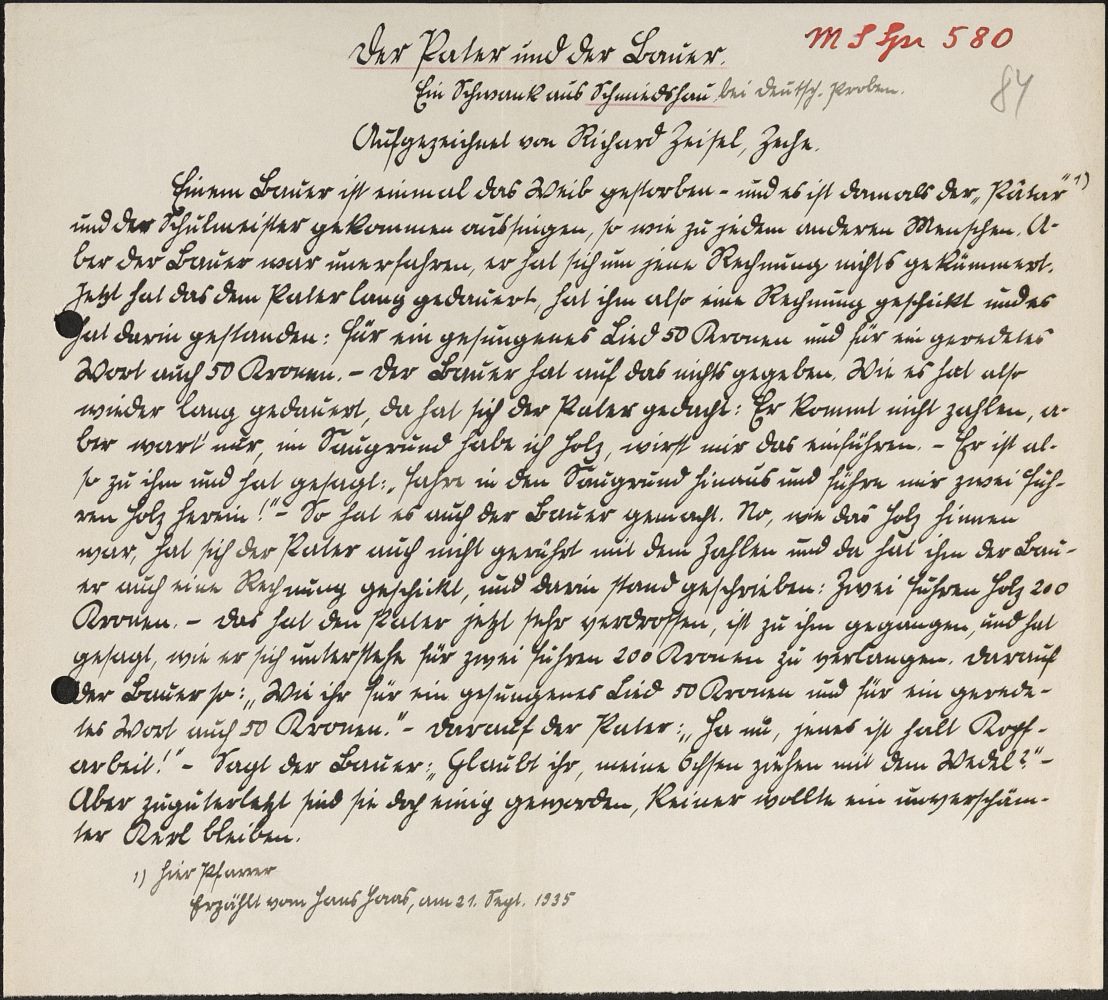 Der Pater und der Bauer.
MS Spr 580
Ein Schwank aus Schmiedshau bei Deutsch. Proben.
84
Aufgezeichnet von Richard Zeisel, Zeche.
Einem Bauer ist einmal das Weib gestorben - und es ist damals der „Pátar" 1)
und der Schulmeister gekommen aussingen, so wie zu jedem anderen Menschen. A-
ber der Bauer war unerfahren, er hat sich um jene Rechnung nichts gekümmert.
Jetzt hat das dem Pater lang gedauert, hat ihm also eine Rechnung geschickt und es
hat darin gestanden: Für ein gesungenes Lied 50 Kronen und für ein geredetes
Wort auch 50 Kronen. - Der Bauer hat auf das nichts gegeben. Wie es hat also
wieder lang gedauert, da hat sich der Pater gedacht: Er kommt nicht zahlen, a-
ber wart' nur, im Saugrund habe ich Holz, wirst mir das einführen. - Er ist al-
so zu ihm und hat gesagt: „Fahre in den Saugrund hinaus und führe mir zwei Fuh-
ren Holz herein!" - So hat es auch der Bauer gemacht. No, wie das Holz hinnen
war, hat sich der Pater auch nicht gerührt mit dem Zahlen und da hat ihm der Bau-
er auch eine Rechnung geschickt, und darin stand geschrieben: Zwei Fuhren Holz 200
Kronen. - Das hat den Pater jetzt sehr verdrossen, ist zu ihm gegangen, und hat
gesagt, wie er sich unterstehe für zwei Fuhren 200 Kronen zu verlangen. Darauf
der Bauer so: „Wie ihr für ein gesungenes Lied 50 Kronen und für ein gerede-
tes Wort auch 50 Kronen." - Darauf der Pater: „Ha nu, jenes ist halt Kopf-
arbeit!" - Sagt der Bauer: „Glaubt ihr, meine Ochsen ziehen mit dem Wedel?" -
Aber zuguterletzt sind sie doch einig geworden, keiner wollte ein unverschäm-
ter Kerl bleiben.
1) Hier Pfarrer
Erzählt vom Hans Haas, am 21. Sept. 1935